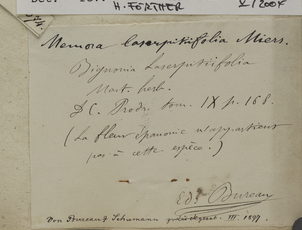 H. FÖRTHER
Memora laserpitiifolia Miers.
Bignonia Laserpitiifolia
Mart. herb.
DC. Prodr. tom. IX p. 168.
(La fleur épanouie n'appartient
pas à cette espèce.)
Ed. Bureau
Von Bureau & Schumann zurückgesandt. III. 1897.